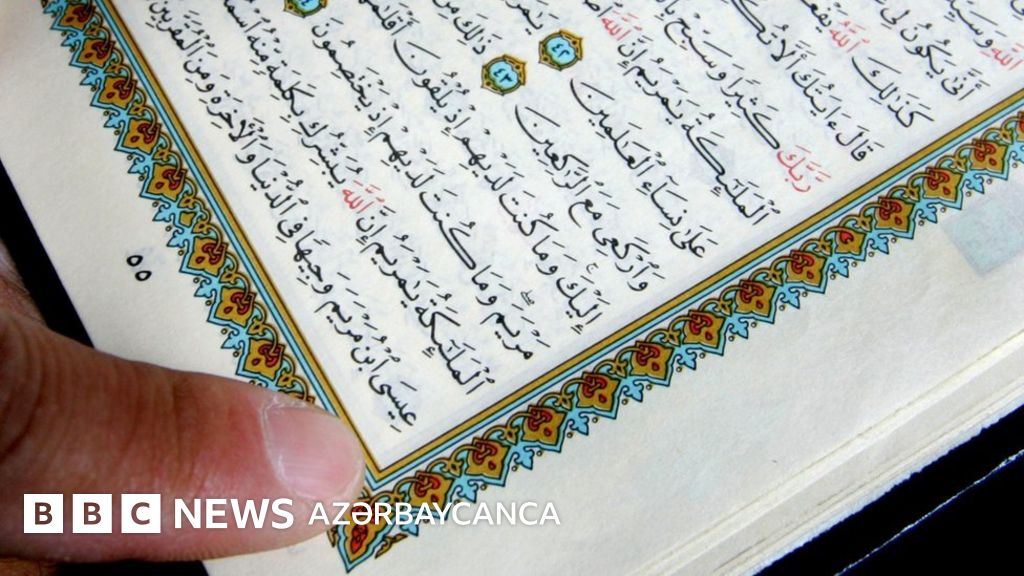 ٱللَّهِ
أَنَّىٰ يَكُونُ لِى
كَذَٰلِكَ ٱللَّهُ يَفْعَلُ
قَالَ ءَايَتُكَ أَلَّا
رَّبَّكَ كَثِيرًا وَسَبِّحْ
ٱلْمَلَٰٓئِكَةُ يَٰمَرْيَمُ إِنَّ ٱللَّهَ
عَلَىٰ نِسَآءِ ٱلْعَٰلَمِينَ ٤٢
وَٱرْكَعِى مَعَ ٱلرَّٰكِعِينَ ٤٣ ذَٰلِكَ مِنْ
إِلَيْكَ وَمَا كُنتَ لَدَيْهِمْ إِذْ يُلْقُونَ
مَرْيَمَ وَمَا كُنتَ لَدَيْهِمْ إِذْ يَخْتَصِمُونَ
ٱلْمَلَٰٓئِكَةُ يَٰمَرْيَمُ إِنَّ ٱللَّهَ يُبَشِّرُكِ بِكَلِمَةٍ مِّنْهُ
عِيسَى ٱبْنُ مَرْيَمَ وَجِيهًا فِى ٱلدُّنْيَا وَٱلْءَاخِرَةِ وَمِنَ ٱلْمُقَرَّبِينَ
٥٥
BBC NEWS AZƏRBAYCANCA